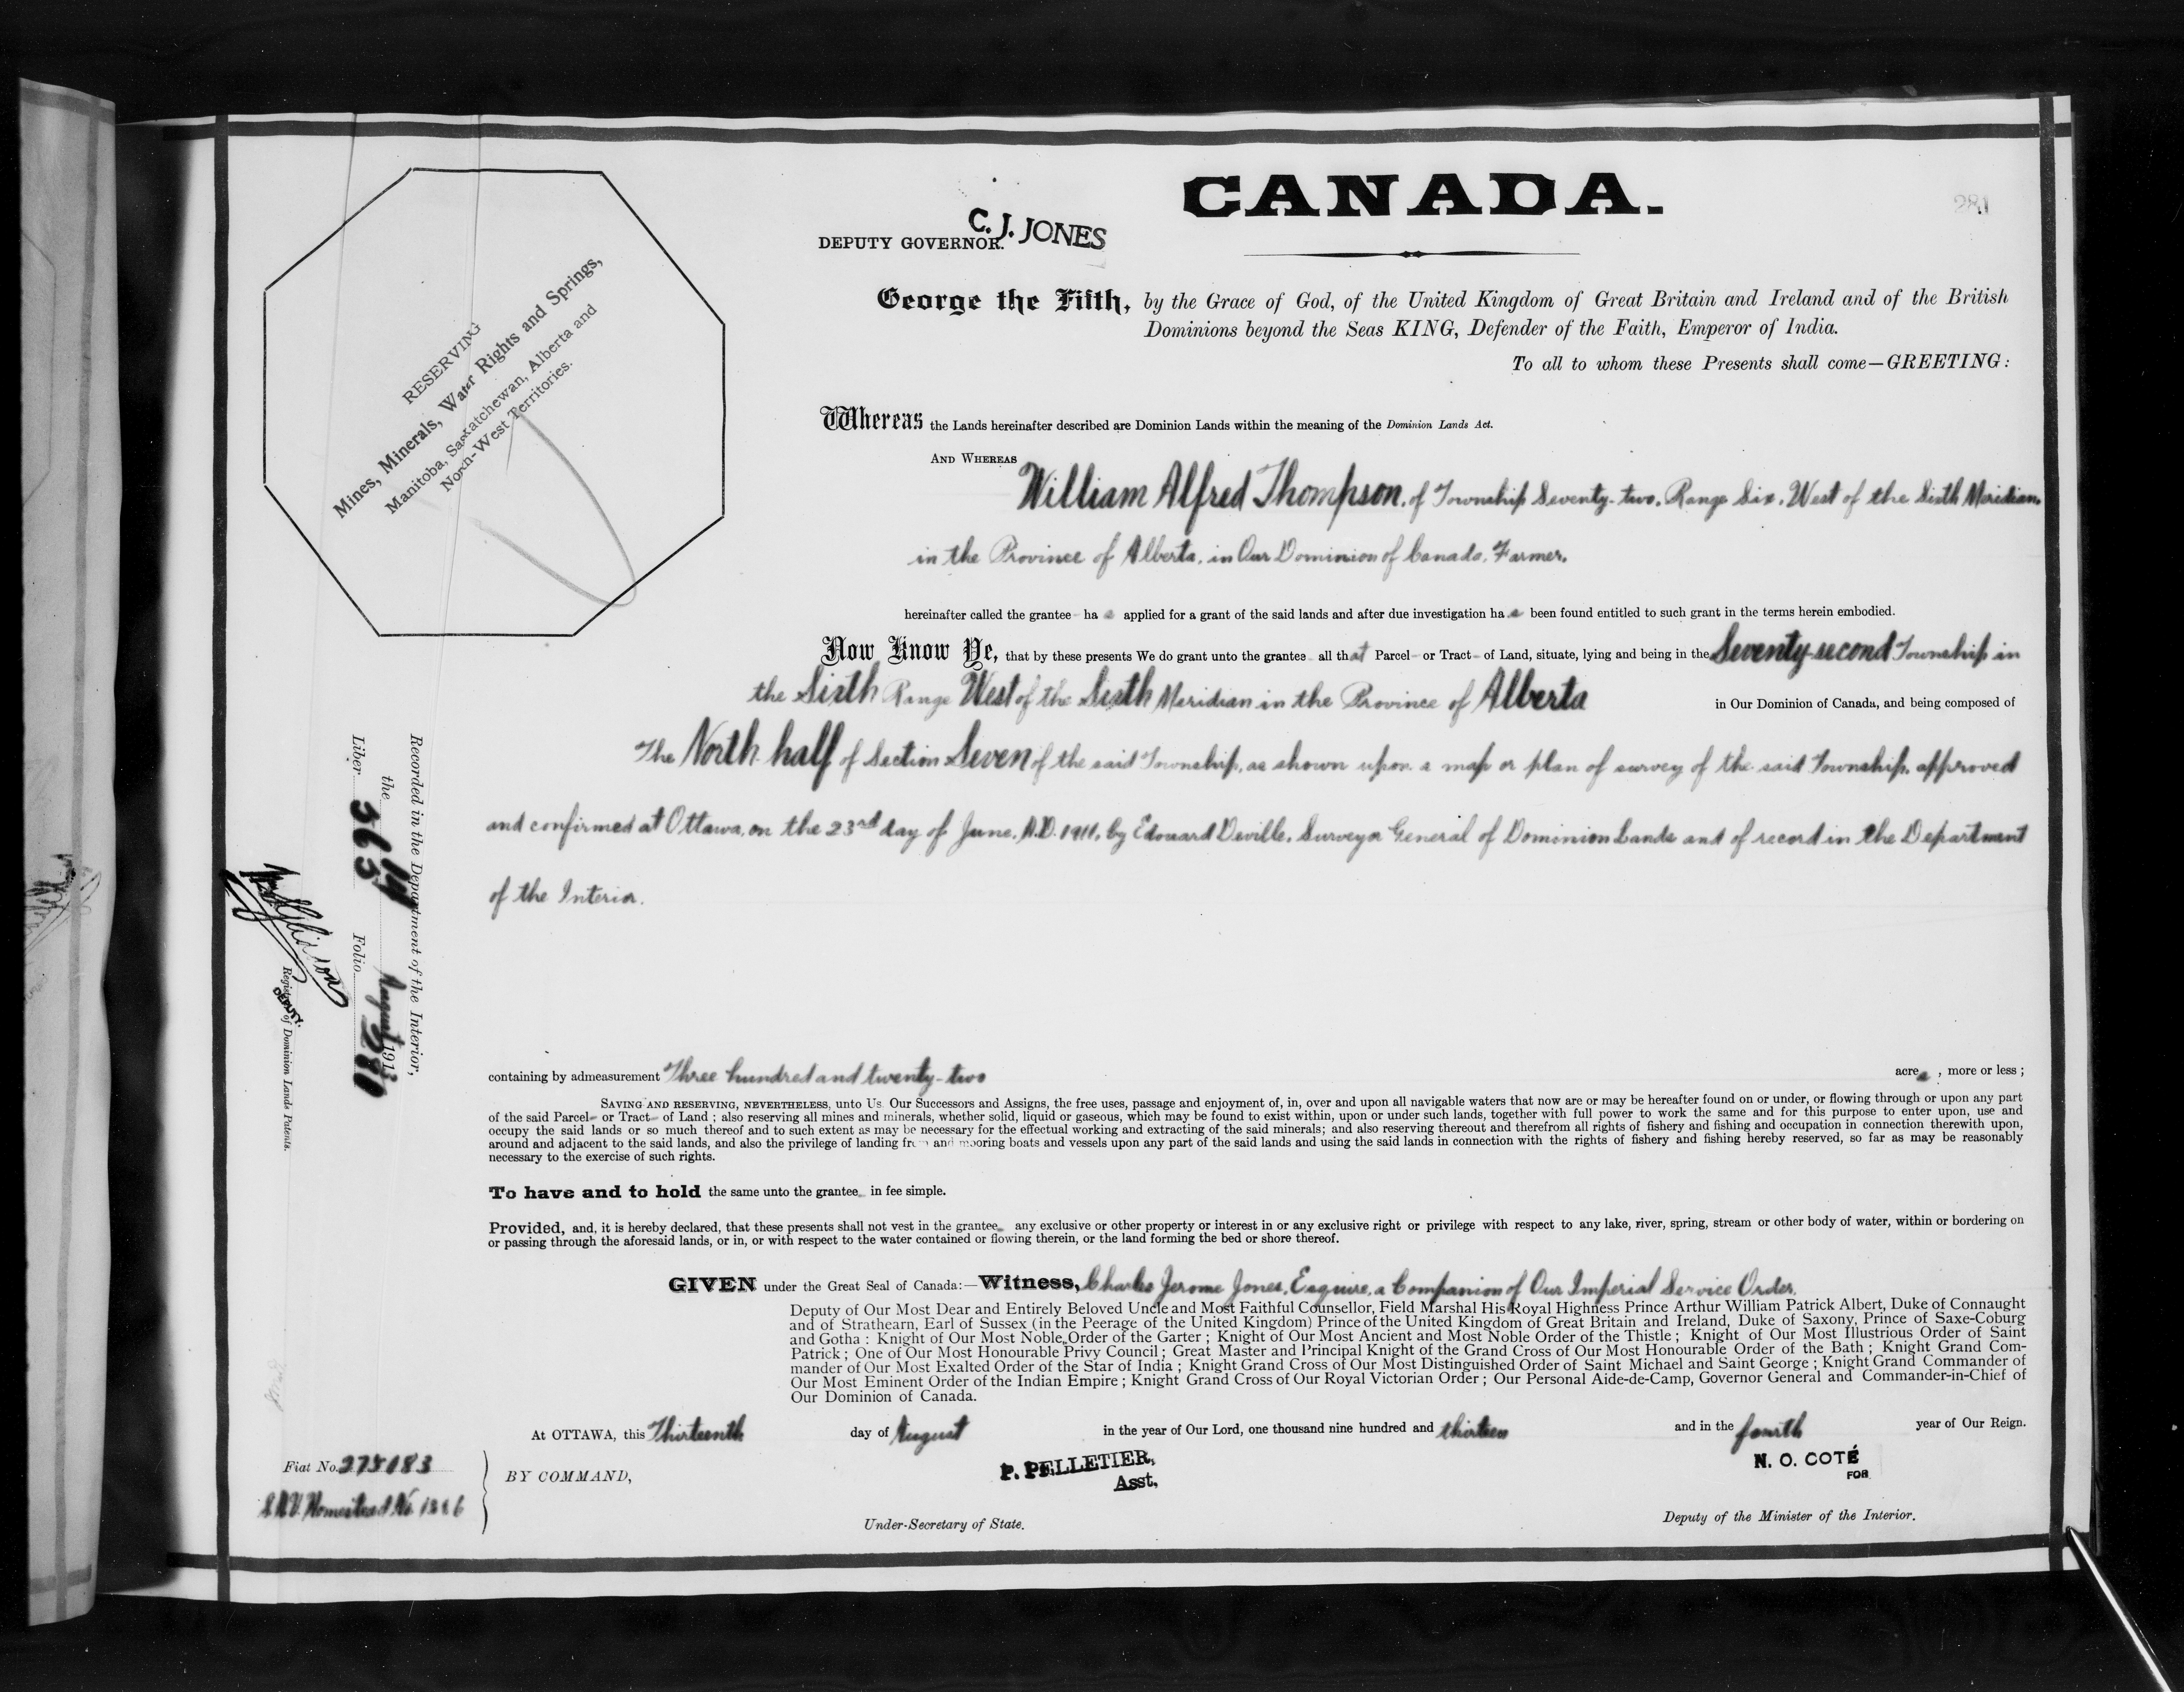 CANADA.
281
C. J. JONES
DEPUTY GOVERNOR.
George the Fifth, by the Grace of God, of the United Kingdom of Great Britain and Ireland and of the British
Dominions beyond the Seas KING, Defender of the Faith, Emperor of India.
To all to whom these Presents shall come—GREETING:
RESERVING
Mines, Minerals, Water Rights and Springs,
Manitoba, Saskatchewan, Alberta and
North-West Territories.
Whereas the Lands hereinafter described are Dominion Lands within the meaning of the Dominion Lands Act.
AND WHEREAS
William Alfred Thompson, of Township Seventy-two, Range Six, West of the Sixth Meridian,
in the Province of Alberta, in Our Dominion of Canada, Farmer,
hereinafter called the grantee - ha s applied for a grant of the said lands and after due investigation ha s been found entitled to such grant in the terms herein embodied.
Now Know Ye, that by these presents We do grant unto the grantee all that Parcel - or Tract - of Land, situate, lying and being in the Seventy-second Township in
the Sixth Range West of the Sixth Meridian in the Province of Alberta in Our Dominion of Canada, and being composed of
The North half of Section Seven of the said Township, as shown upon a map or plan of survey of the said Township, approved
and confirmed at Ottawa, on the 23rd day of June, A.D. 1911, by Edouard Deville, Surveyor General of Dominion Lands and of record in the Department
of the Interior.
Recorded in the Department of the Interior,
the 19 August 1913
Liber 565 Folio 280
DEPUTY
Registrar of Dominion Lands Patents.
containing by admeasurement Three hundred and twenty-two acres, more or less;
SAVING AND RESERVING, NEVERTHELESS, unto Us Our Successors and Assigns, the free uses, passage and enjoyment of, in, over and upon all navigable waters that now are or may be hereafter found on or under, or flowing through or upon any part
of the said Parcel - or Tract - of Land; also reserving all mines and minerals, whether solid, liquid or gaseous, which may be found to exist within, upon or under such lands, together with full power to work the same and for this purpose to enter upon, use and
occupy the said lands or so much thereof and to such extent as may be necessary for the effectual working and extracting of the said minerals; and also reserving thereout and therefrom all rights of fishery and fishing and occupation in connection therewith upon,
around and adjacent to the said lands, and also the privilege of landing from and mooring boats and vessels upon any part of the said lands and using the said lands in connection with the rights of fishery and fishing hereby reserved, so far as may be reasonably
necessary to the exercise of such rights.
To have and to hold the same unto the grantee in fee simple.
Provided, and, it is hereby declared, that these presents shall not vest in the grantee any exclusive or other property or interest in or any exclusive right or privilege with respect to any lake, river, spring, stream or other body of water, within or bordering on
or passing through the aforesaid lands, or in, or with respect to the water contained or flowing therein, or the land forming the bed or shore thereof.
GIVEN under the Great Seal of Canada:—Witness, Charles Jerome Jones, Esquire, a Companion of Our Imperial Service Order,
Deputy of Our Most Dear and Entirely Beloved Uncle and Most Faithful Counsellor, Field Marshal His Royal Highness Prince Arthur William Patrick Albert, Duke of Connaught
and of Strathearn, Earl of Sussex (in the Peerage of the United Kingdom) Prince of the United Kingdom of Great Britain and Ireland, Duke of Saxony, Prince of Saxe-Coburg
and Gotha: Knight of Our Most Noble Order of the Garter; Knight of Our Most Ancient and Most Noble Order of the Thistle; Knight of Our Most Illustrious Order of Saint
Patrick; One of Our Most Honourable Privy Council; Great Master and Principal Knight of the Grand Cross of Our Most Honourable Order of the Bath; Knight Grand Com-
mander of Our Most Exalted Order of the Star of India; Knight Grand Cross of Our Most Distinguished Order of Saint Michael and Saint George; Knight Grand Commander of
Our Most Eminent Order of the Indian Empire; Knight Grand Cross of Our Royal Victorian Order; Our Personal Aide-de-Camp, Governor General and Commander-in-Chief of
Our Dominion of Canada.
At OTTAWA, this Thirteenth day of August in the year of Our Lord, one thousand nine hundred and thirteen and in the fourth year of Our Reign.
Fiat No. 275183
Homestead No. 1386
BY COMMAND,
P. PELLETIER,
Asst.
Under-Secretary of State.
N. O. COTÉ
FOR
Deputy of the Minister of the Interior.